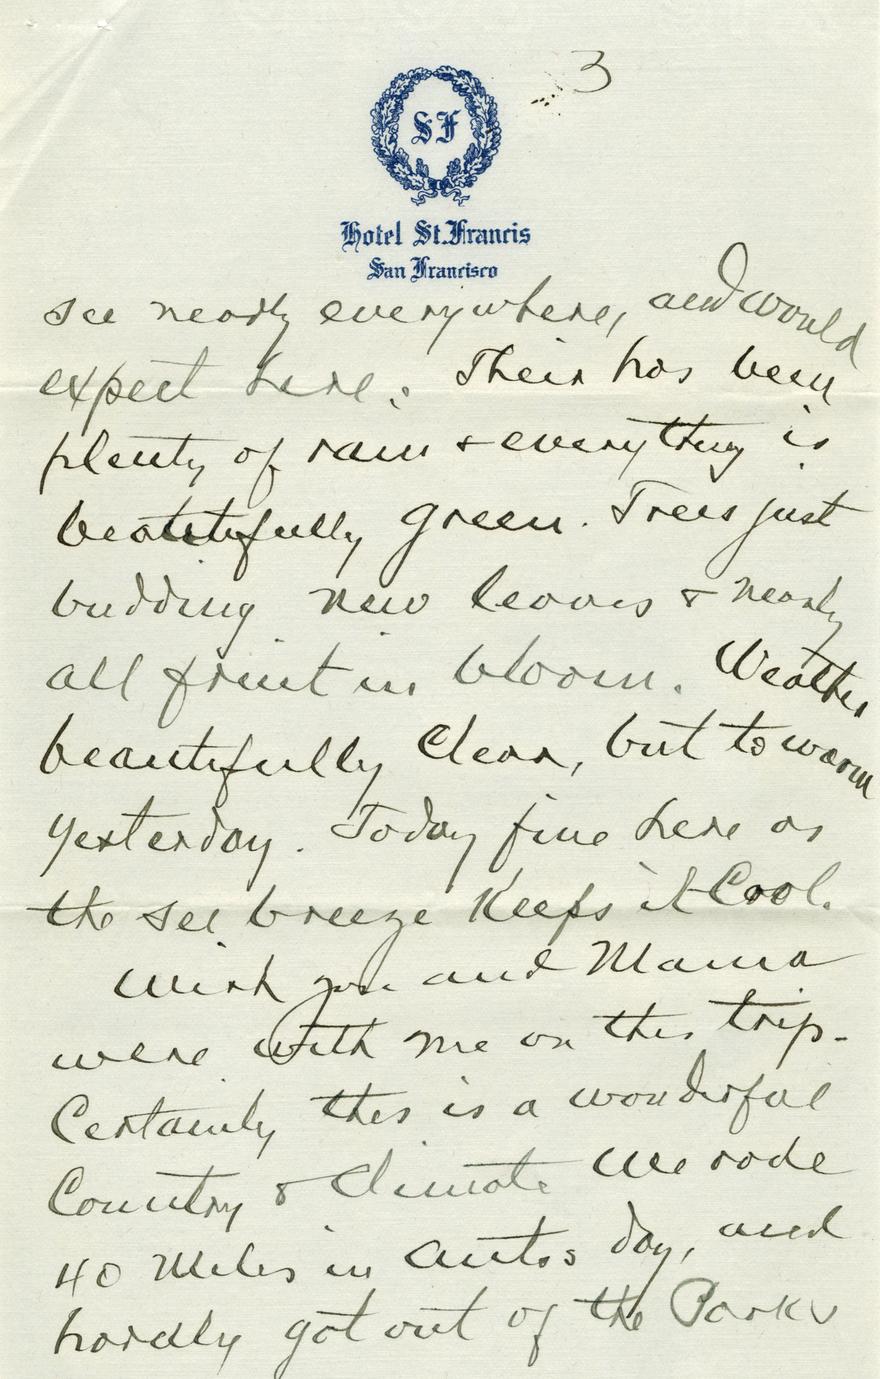 3
SF
Hotel St. Francis
San Francisco
see nearly everywhere, and would
expect here. Their has been
plenty of rain & everything is
beatutifully green. Trees just
budding new leaves & nearly
all fruit in bloom. Weather
beautifully clear, but to warm
yesterday. Today fine here as
the see breeze keeps it Cool.
Wish you and Mama
were with me on this trip.
Certainly this is a wonderful
Country & Climate We rode
40 Miles in autos day, and
hardly got out of the Parks